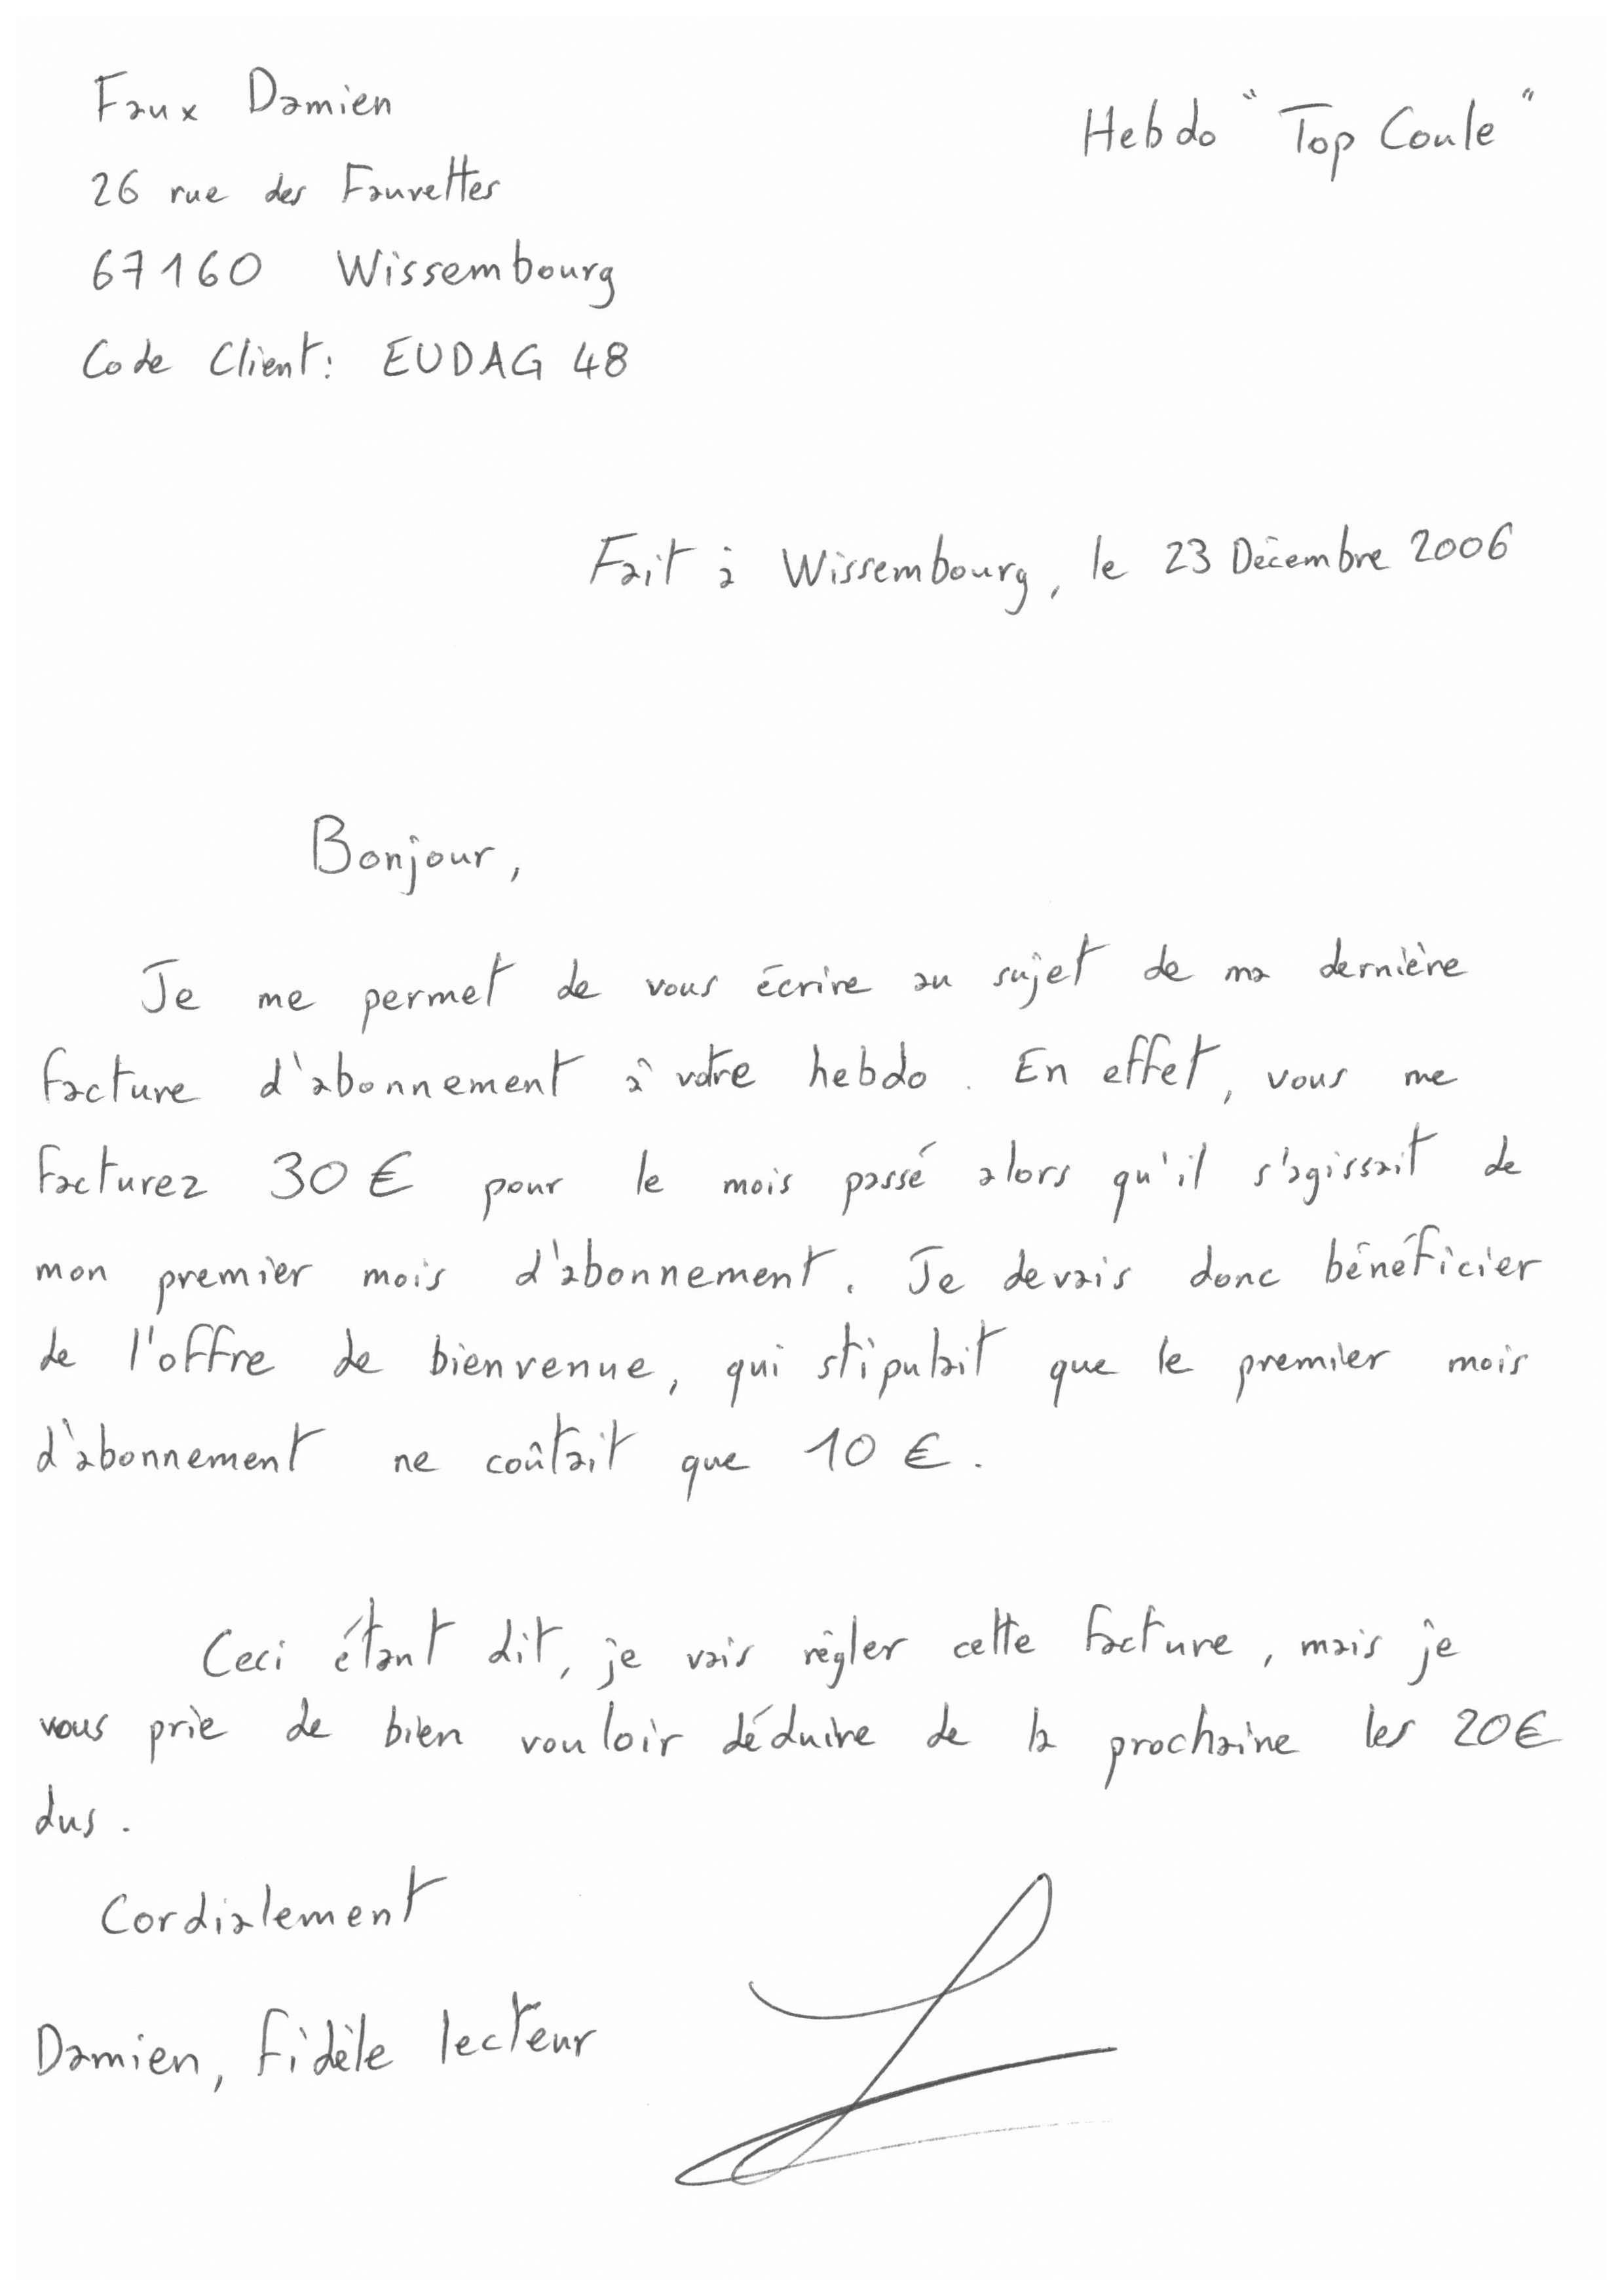 Faux Damien
26 rue des Fauvettes
67160 Wissembourg
Code Client: EUDAG 48
Hebdo "Top Coule"
Fait à Wissembourg, le 23 Décembre 2006
Bonjour,
Je me permet de vous écrire au sujet de ma dernière
facture d'abonnement à votre hebdo. En effet, vous me
facturez 30 € pour le mois passé alors qu'il s'agissait de
mon premier mois d'abonnement. Je devais donc bénéficier
de l'offre de bienvenue, qui stipulait que le premier mois
d'abonnement ne coûtait que 10 €.
Ceci étant dit, je vais régler cette facture, mais je
vous prie de bien vouloir déduire de la prochaine les 20€
dus.
Cordialement
Damien, fidèle lecteur